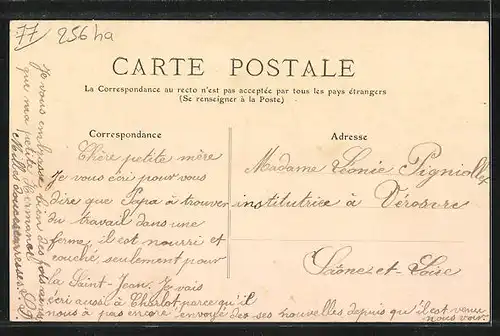 77 256ha
CARTE POSTALE
La Correspondance au recto n'est pas acceptée par tous les pays étrangers
(Se renseigner à la Poste)
Correspondance
Chère petite mère
Je vous écri pour vous
dire que Papa à trouver
du travail dans une
ferme, il est nourri et
couché seulement pour
la Saint-Jean. Je vais
écri aussi à Charlot parce qu'il
nous à pas encore envoyé des ses nouvelles depuis qu'il est venu
nous voir.
Adresse
Madame Léonie
institutrice à Vérosvre
Saône-et-Loire
Je vous embrasse bien des fois ainsi
que ma petite
Milles